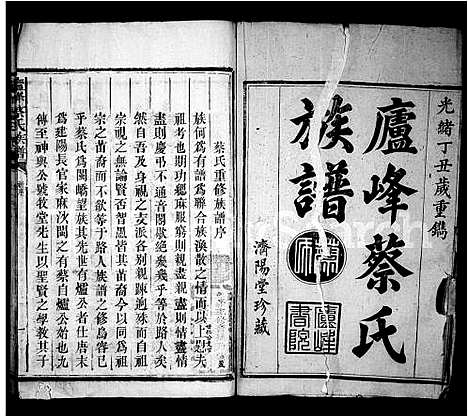 光緒丁丑歲重鐫
廬峰蔡氏
族譜
濟陽堂珍藏
廬峰
書院
蔡氏重修族譜序
族何為有譜為聯合族渙散之情而以上
祖考也期功緦麻服窮則親盡親盡則情盡情
盡則慶弔不通音問闊絕漠漠焉等於路人矣
然自吾及身視之支派各別親疎迥殊而自祖
視之無論賢否智愚皆其苗裔今以同為祖
宗之苗裔而不欲等于路人族譜之修烏容已
哉蔡氏為閩嶠望族其先世有爐公者仕唐末
為建陽長官家麻沙閩之有蔡自爐公始也九
傳至神與公號牧堂先生以聖賢之學教其子